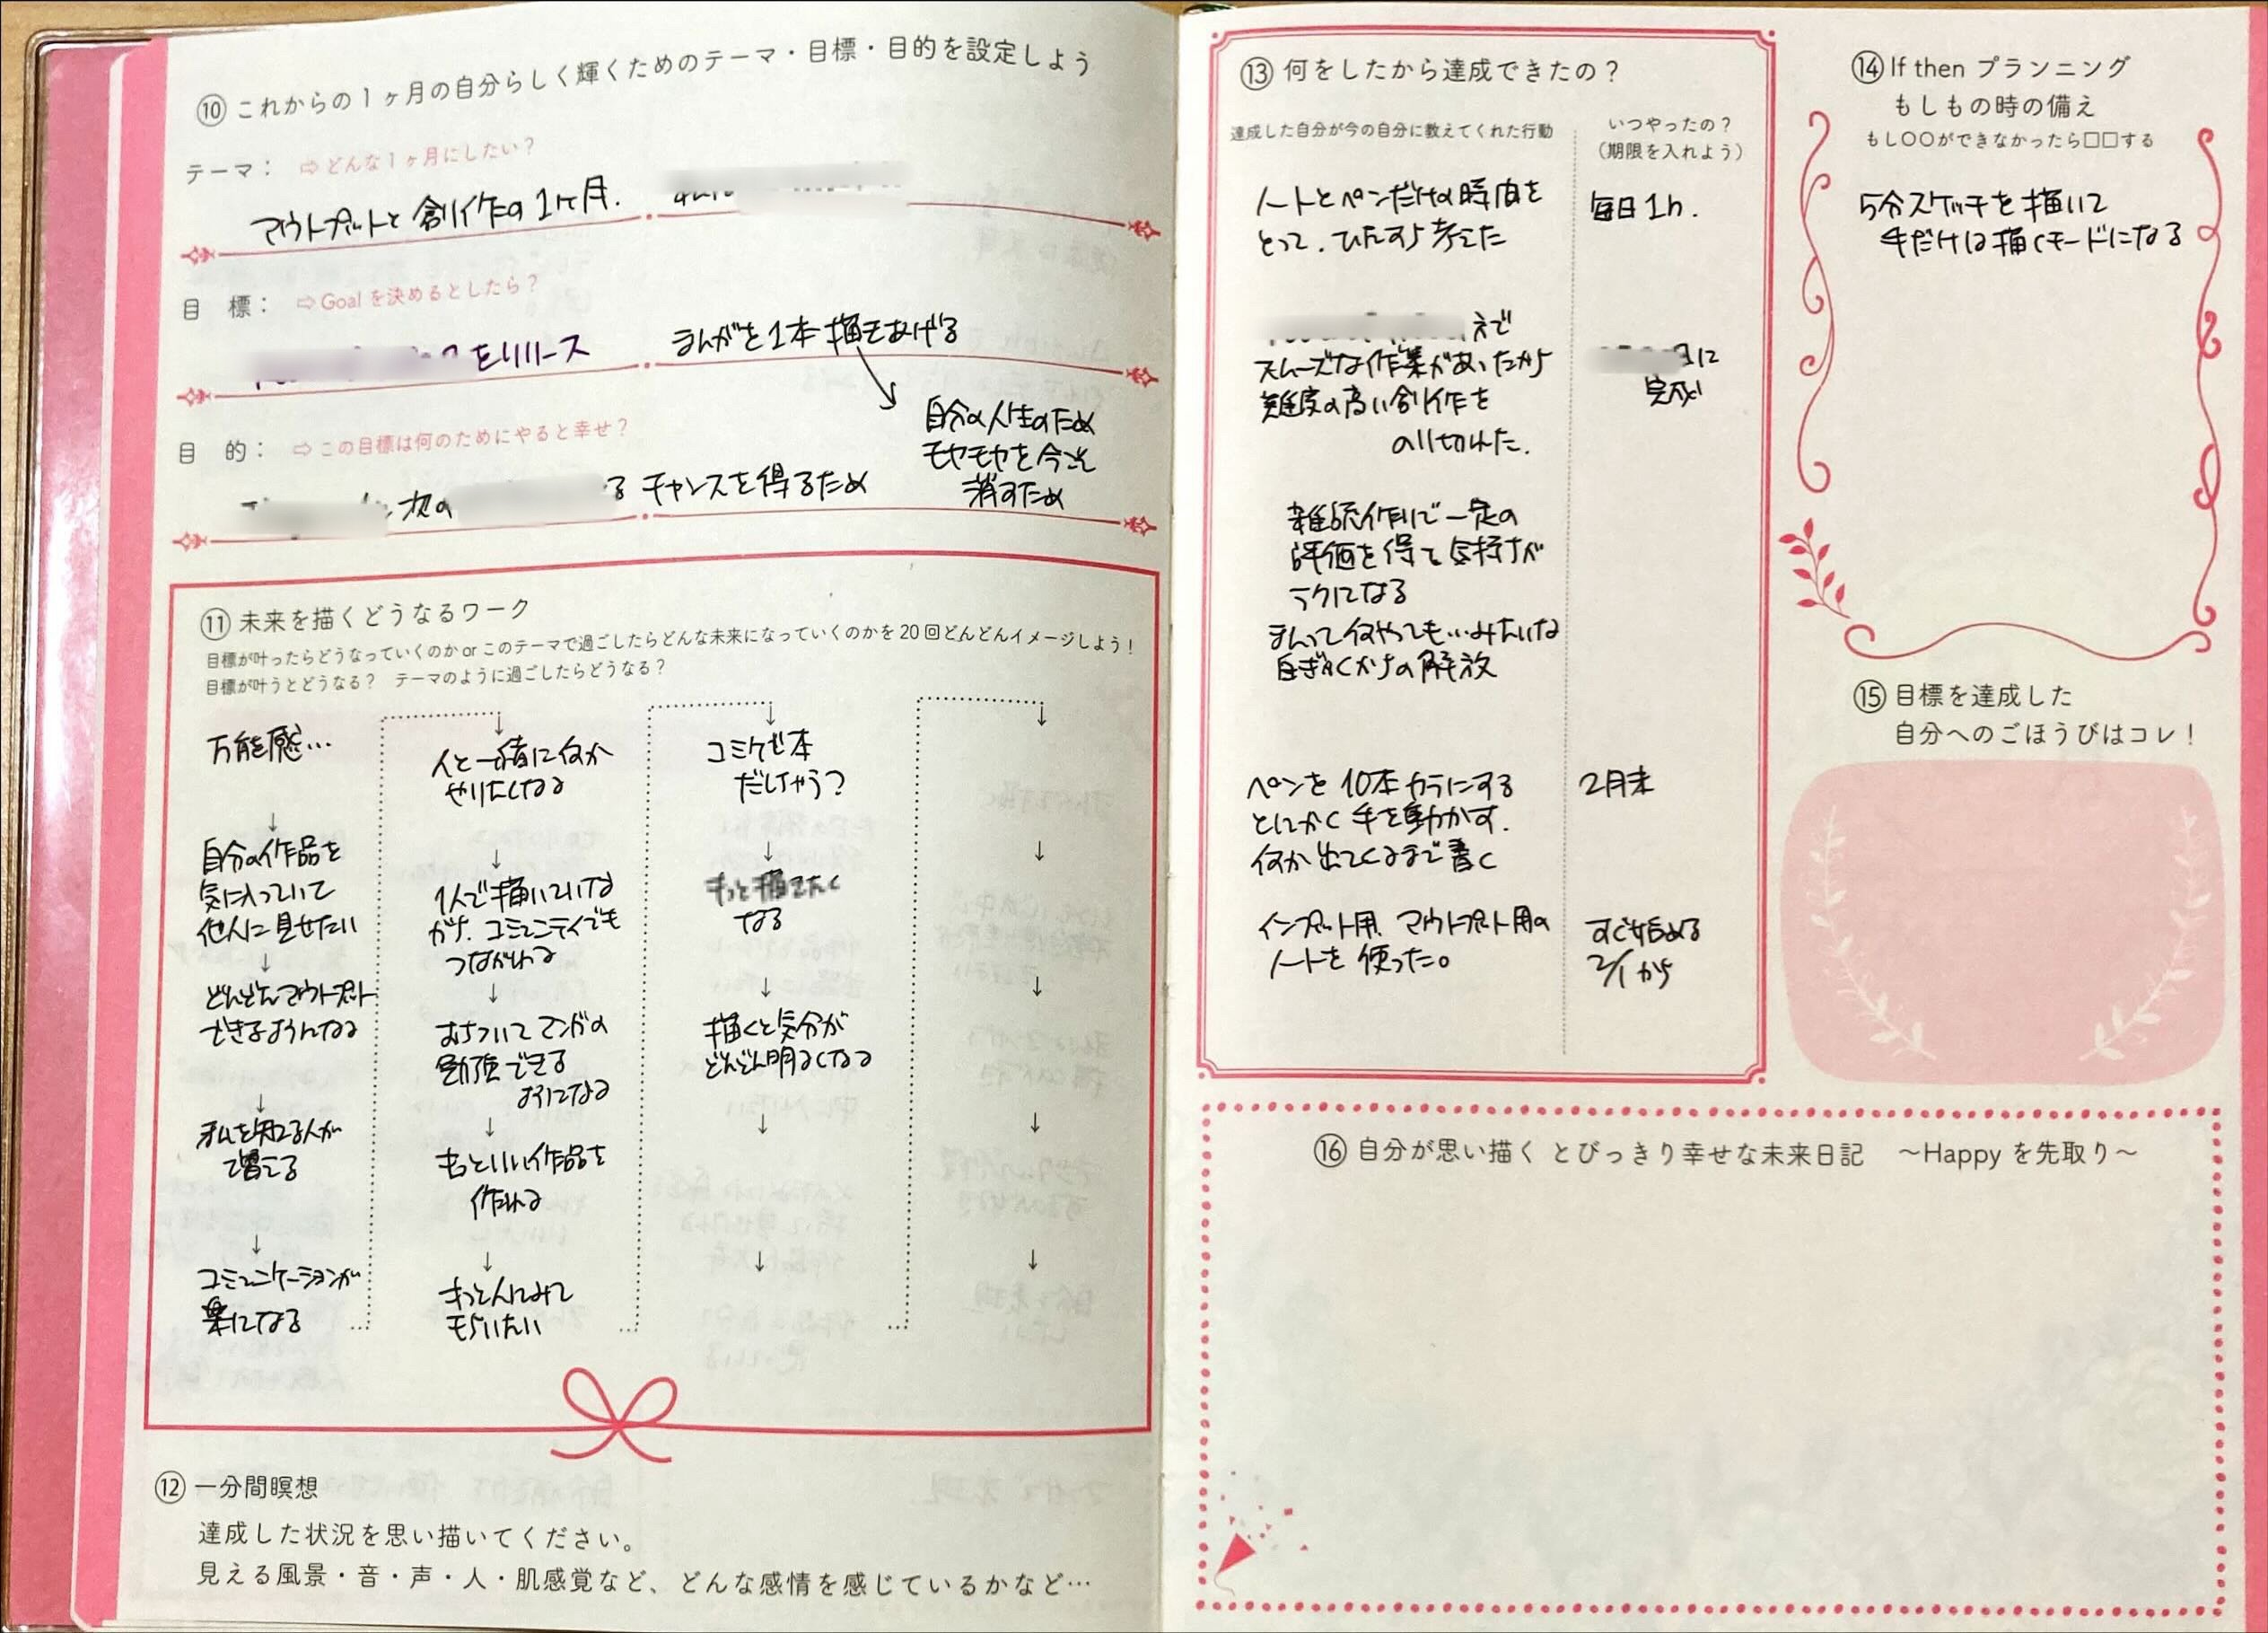 ⑩ これからの1ヶ月の自分らしく輝くためのテーマ・目標・目的を設定しよう
テーマ： ⇨どんな1ヶ月にしたい？
アウトプットと創作の1ヶ月.
目 標： ⇨Goalを決めるとしたら？
をリリース
まんがを1本描きあげる
目 的： ⇨この目標は何のためにやると幸せ？
次の る チャンスを得るため
自分の人生のため
モヤモヤを今こそ
消すため
⑪ 未来を描くどうなるワーク
目標が叶ったらどうなっていくのか or このテーマで過ごしたらどんな未来になっていくのかを20回どんどんイメージしよう！
目標が叶うとどうなる？ テーマのように過ごしたらどうなる？
万能感…
↓
自分の作品を
気に入っていて
他人に見せたい
↓
どんどんアウトプット
できるようになる
↓
私を知る人が
増える
↓
コミュニケーションが
楽になる
↓
人と一緒に何か
やりたくなる
↓
1人で描いていな
がら、コミュニティでも
つながれる
↓
おちついてマンガの
勉強できる
ようになる
↓
もっといい作品を
作れる
↓
もっと人にみて
もらいたい
↓
コミケで本
だしちゃう？
↓
もっと描きたく
なる
↓
描くと気分が
どんどん明るくなる
↓
↓
↓
↓
↓
↓
↓
⑫ 一分間瞑想
達成した状況を思い描いてください。
見える風景・音・声・人・肌感覚など、どんな感情を感じているかなど…
⑬ 何をしたから達成できたの？
達成した自分が今の自分に教えてくれた行動
いつやったの？
（期限を入れよう）
ノートとペンだけの時間を
とって、ひたすら考えた
毎日1h.
えで
スムーズな作業があったから
難度の高い創作を
のり切れた.
に
完成
雑誌作りで一定の
評価を得て気持ちが
ラクになる
って何やっても…みたいな
自ぎゃくからの解放
ペンを10本カラにする
とにかく手を動かす.
何か出てくるまで書く
2月末
インプット用、アウトプット用の
ノートを使った。
すぐ始める
2/1から
⑭ If then プランニング
もしもの時の備え
もし〇〇ができなかったら□□する
5分スケッチを描いて
手だけは描くモードになる
⑮ 目標を達成した
自分へのごほうびはコレ！
⑯ 自分が思い描く とびっきり幸せな未来日記 ～Happyを先取り～